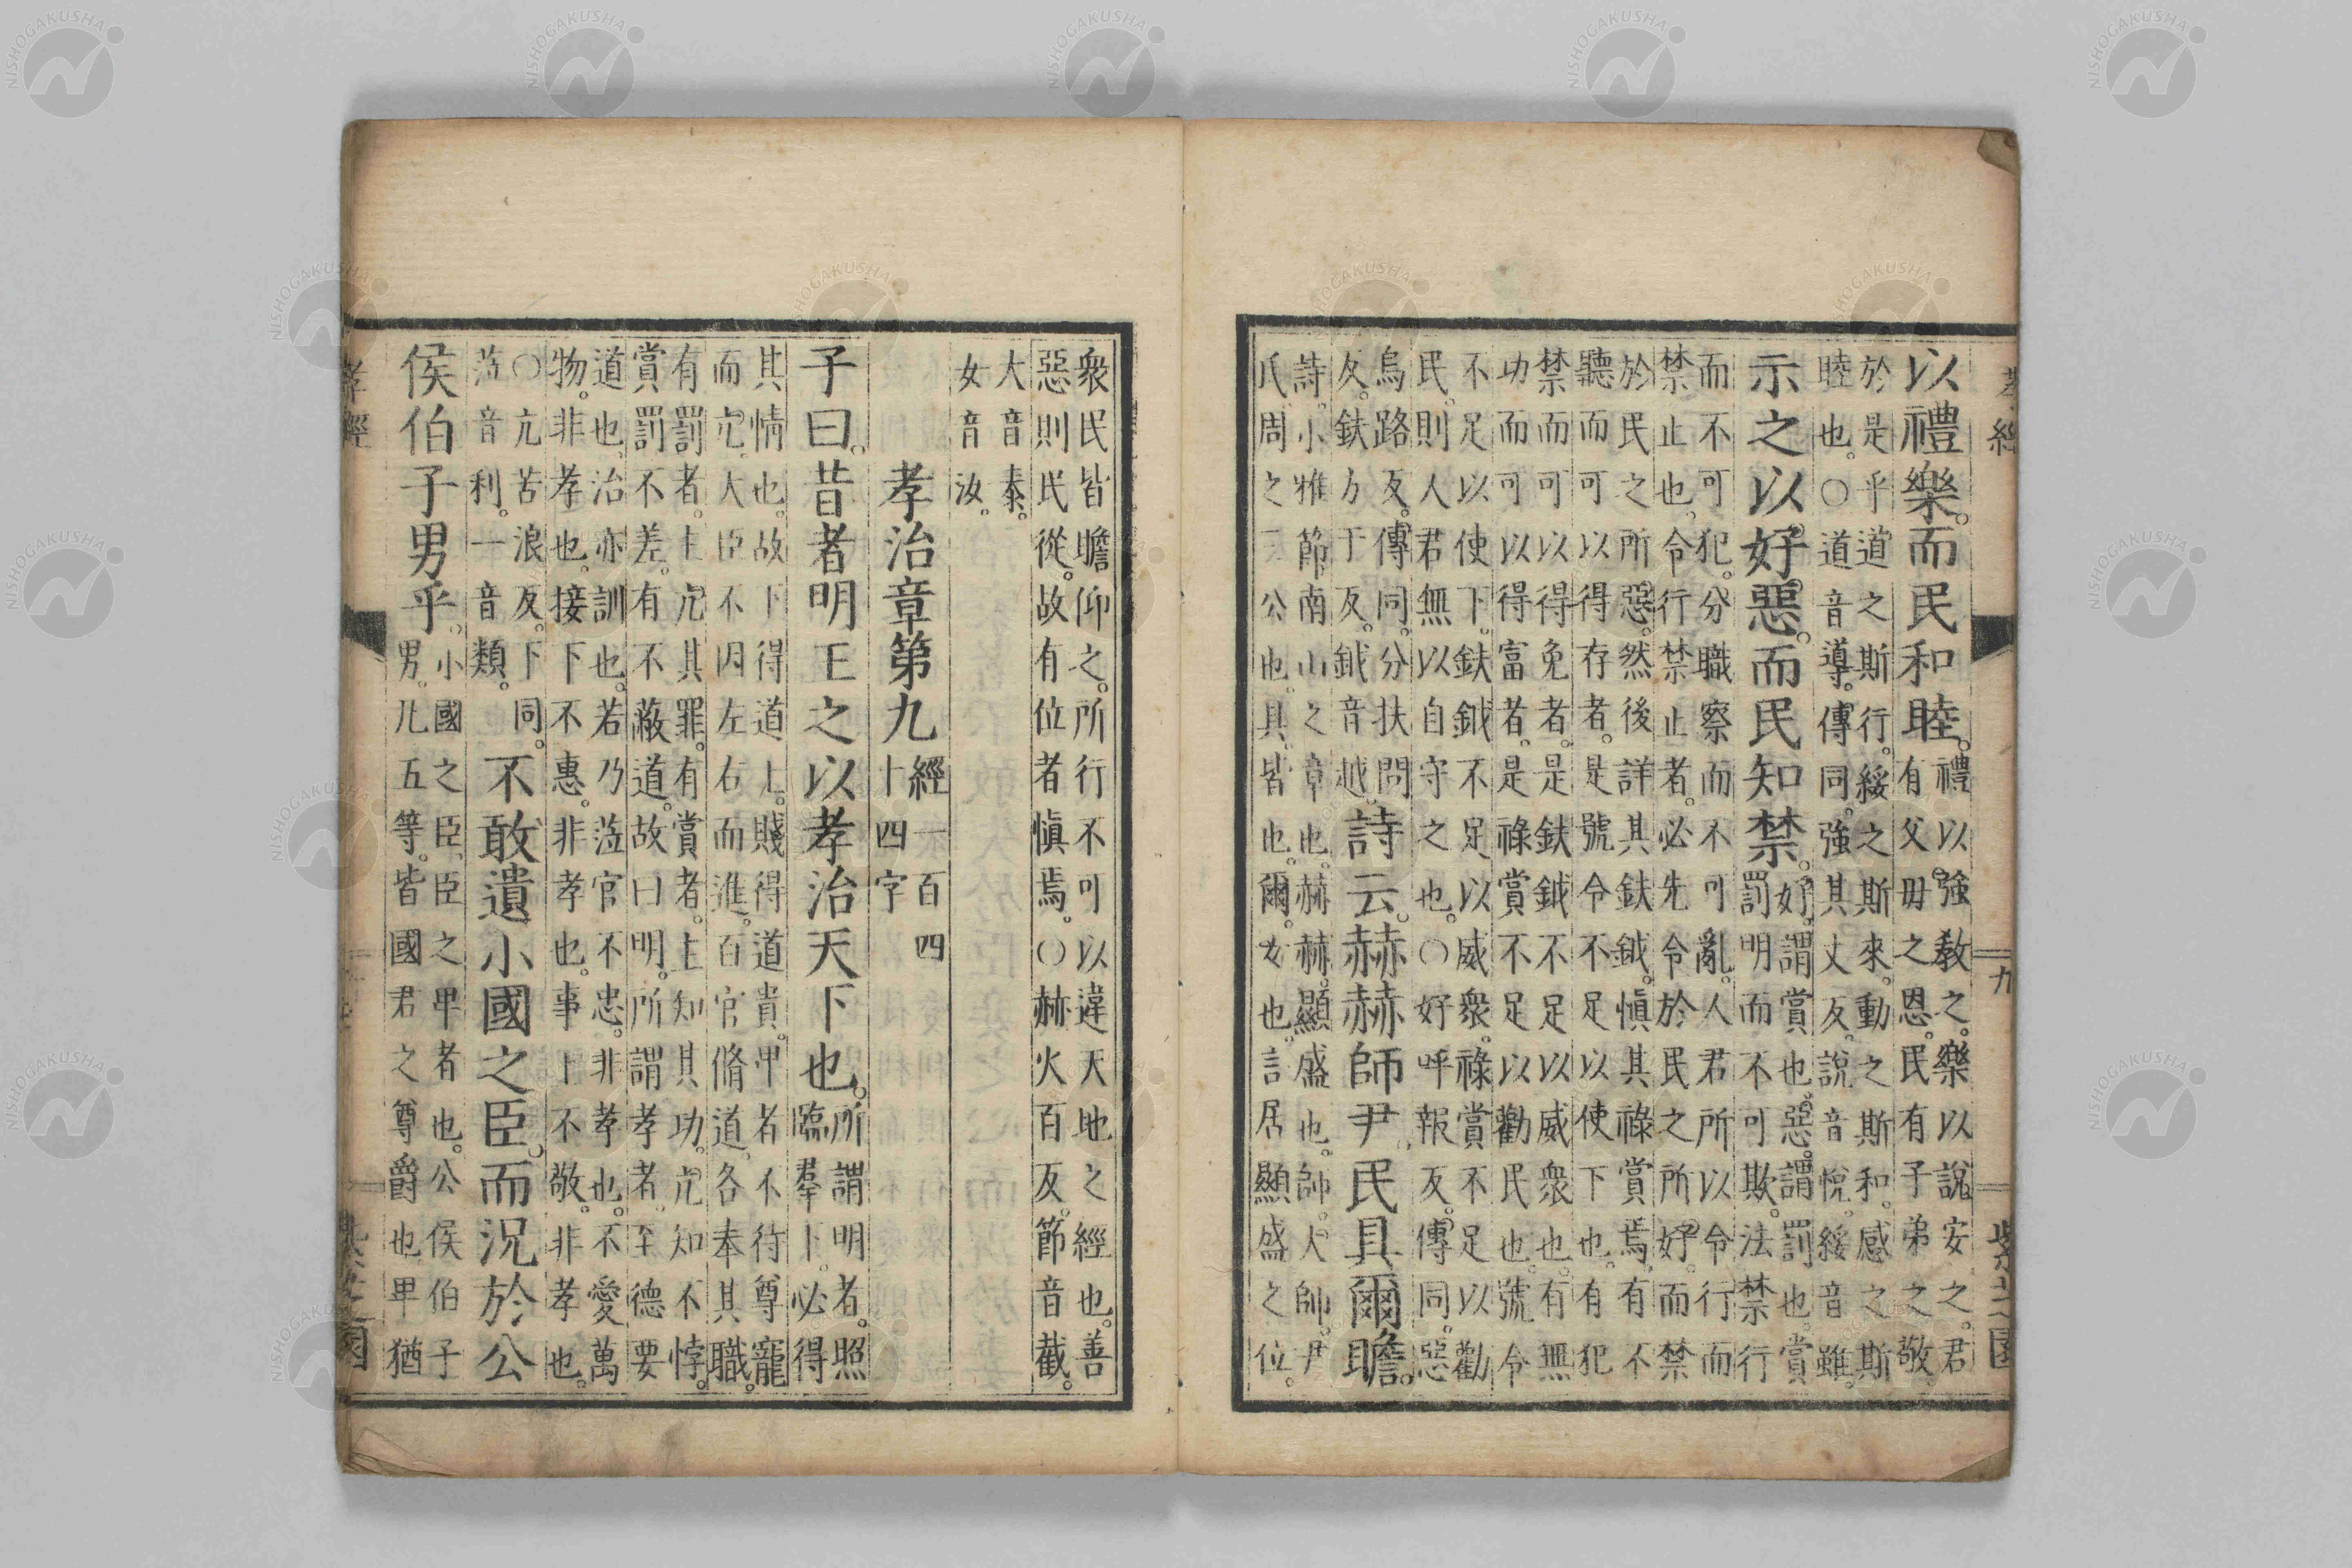 以禮樂。而民和睦。禮以強教之。樂以說安之。君
有父毋之恩。民有子弟之敬。
於是乎道之斯行。綏之斯來。動之斯和。感之斯
睦也。○道音導。傳同。強其丈反。說音悅。綏音雖。
示之以好惡。而民知禁。好。謂賞也。惡。謂罰也。賞
罰明而不可欺。法禁行
而不可犯。分職察而不可亂。人君所以令行而
禁止也。令行禁止者。必先令於民之所好。而禁
於民之所惡。然後詳其鈇鉞。慎其祿賞焉。有不
聽而可以得存者。是號令不足以使下也。有犯
禁而可以得免者。是鈇鉞不足以威衆也。有無
功而可以得富者。是祿賞不足以勸民也。號令
不足以使下。鈇鉞不足以威衆。祿賞不足以勸
民。則人君無以自守之也。○好呼報反。傳同。惡
烏路反。傳同。分扶問
反。鈇方于反。鉞音越。詩云。赫赫師尹民具爾瞻。
詩。小雅節南山之章也。赫赫。顯盛也。帥。大帥。尹
氏。周之三公也。具。皆也。爾。女也。言居顯盛之位。
九
衆民皆瞻仰之。所行不可以違天地之經也。善
惡則民從。故有位者慎焉。○赫火百反。節音截。
大音泰。
女音汝。
孝治章第九經一百四
十四字
子曰。昔者明王之以孝治天下也。所謂明者。照
臨羣下。必得
其情也。故下得道上。賤得道貴。卑者不待尊寵
而亢。大臣不因左右而進。百官脩道。各奉其職。
有罰者。主亢其罪。有賞者。主知其功。亢知不悖。
賞罰不差。有不蔽道。故曰明。所謂孝者。至德要
道也。治亦訓也。若乃蒞官不忠。非孝也。不愛萬
物。非孝也。接下不惠。非孝也。事上不敬。非孝也。
○亢苦浪反。下同。
蒞音利。一音類。不敢遺小國之臣。而況於公
侯伯子男乎。小國之臣。臣之卑者也。公侯伯子
男。凡五等。皆國君之尊爵也卑猶
孝經